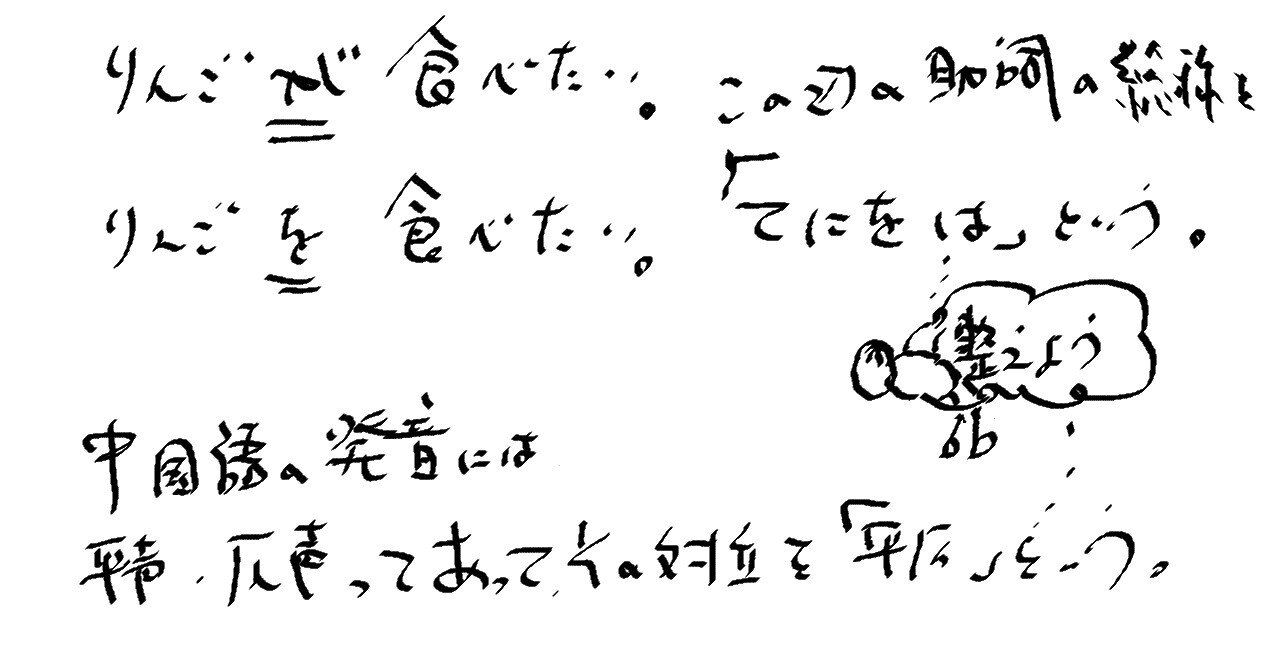 りんごが食べたい。
りんごを食べたい。
この辺の助詞の総称を
「てにをは」という。
整えよう
bb
中国語の発音には
平声・仄声ってあってその対立を「平仄」という。